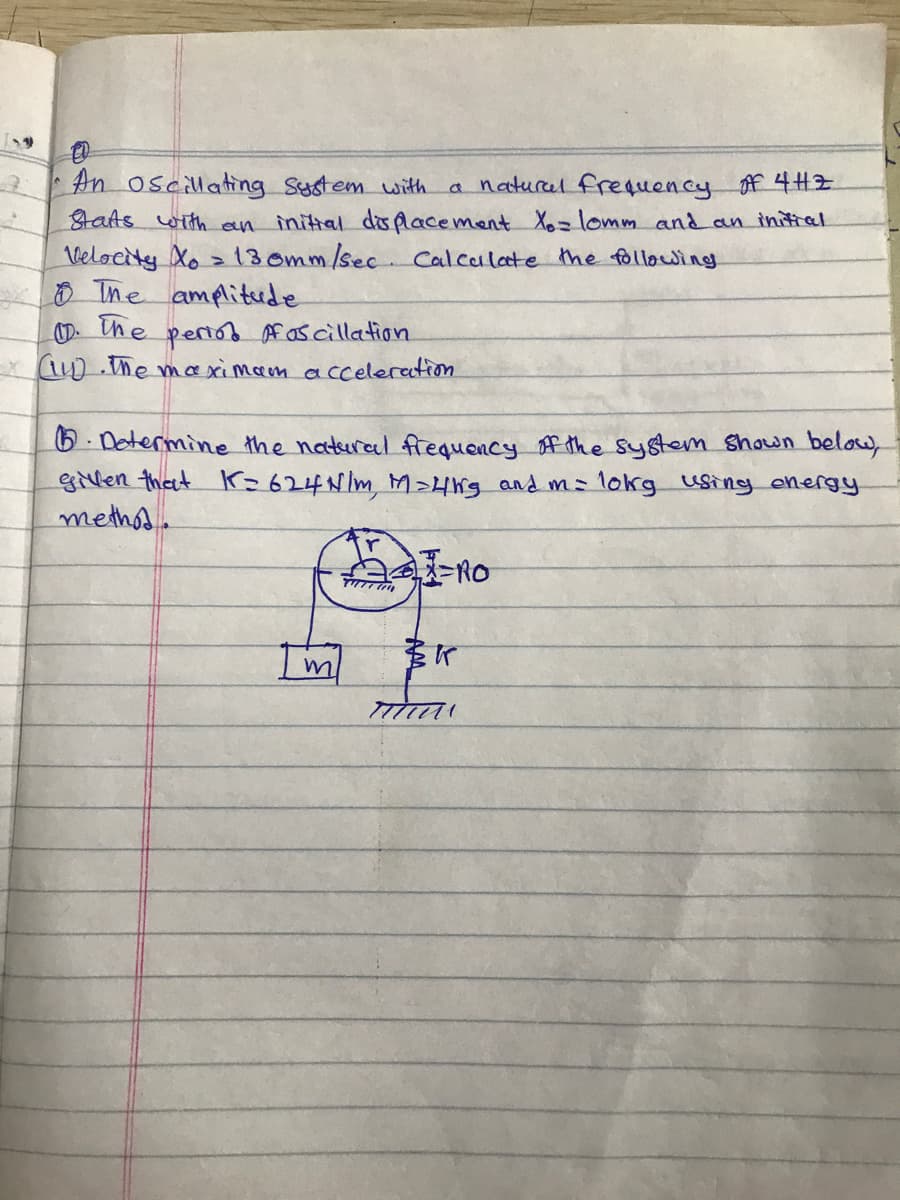 a
An oscillating system with a natural frequency of 4Hz
Starts with an initial displacement X₀= 10mm and an initial
Velocity Ẋ₀ = 130mm/sec. Calculate the following
(i) The amplitude
(ii). The period of oscillation
(iii). The maximam acceleration
(b). Determine the natural frequency of the system shown below,
given that K= 624N/m, M=4kg and m= 10kg using energy
method.
r
θ x=Rθ
m
k